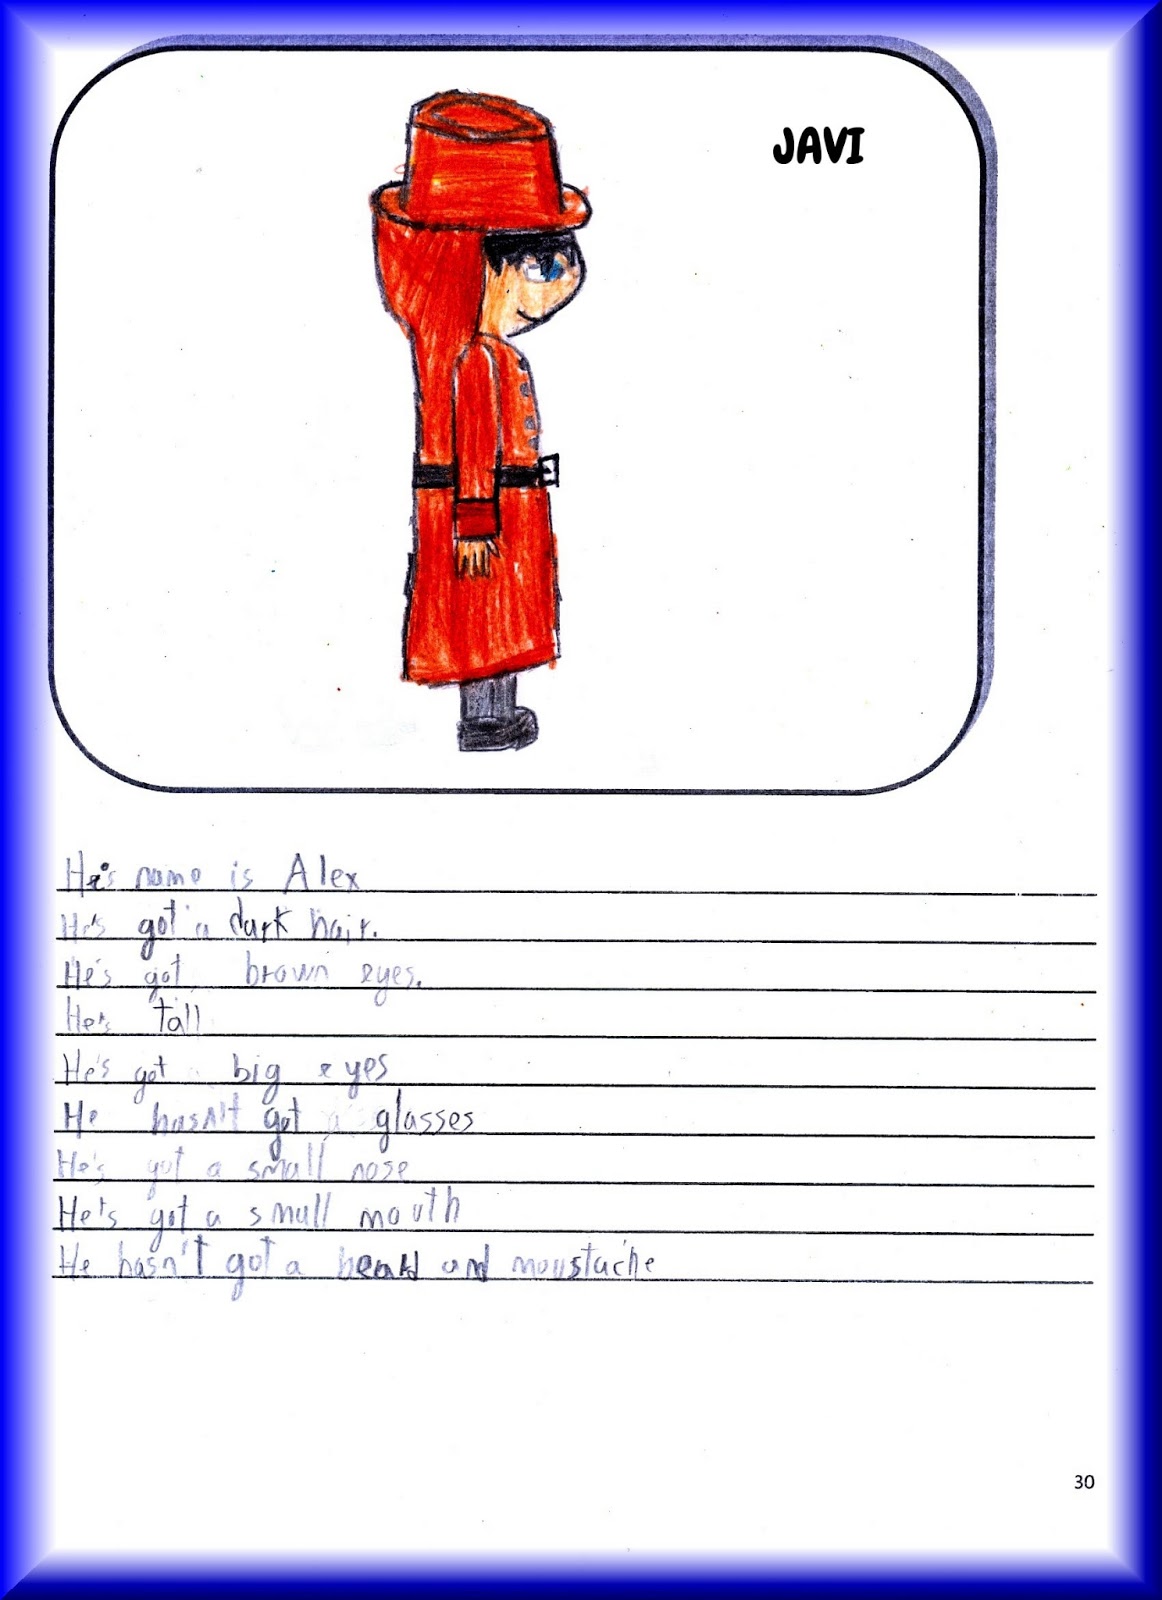 JAVI
He's name is Alex
He's got a dark hair.
He's got brown eyes.
He's tall
He's got big eyes
He hasn't got a glasses
He's got a small nose
He's got a small mouth
He hasn't got a beard and moustache
30